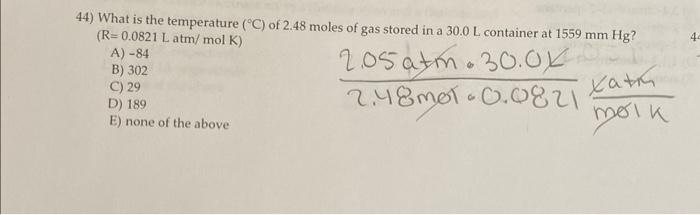 44) What is the temperature (°C) of 2.48 moles of gas stored in a 30.0 L container at 1559 mm Hg?
(R= 0.0821 L atm/ mol K)
A) -84
B) 302
C) 29
D) 189
E) none of the above
2.05 atm • 30.0 L
2.48 mol • 0.0821 L atm
mol K